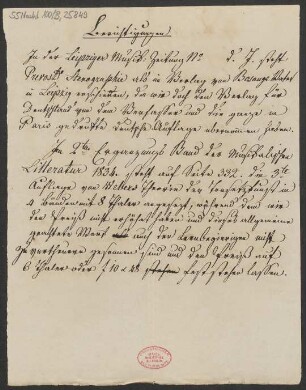 55 Nachl 100/B, 25840
Berichtigungen.
In der Leipziger Musik. Zeitung No d. J. steht
Prevosts Stenographie als in Verlag von
in Leipzig erschienen, da wir doch den Verlag für
Deutschland von dem Verfasser und die ganze in
Paris gedruckte deutsche Auflage übernommen haben.
Im Ergänzungs Band der Musikalischen
Litteratur 1834. steht auf Seite 332. die 3te
Auflage von Webers Theorie der Tonsetzkunst in
4 Bänden mit 8 Thaler angesetzt, während dem wir
den Preiß nicht erhöhet haben und dieses allgemein
geachtete Werk auch der Lernbegierigen nicht
zu vertheuern gesonnen sind und den Preiß auf
6 Thaler oder f 10 x 48 fest stehen lassen.